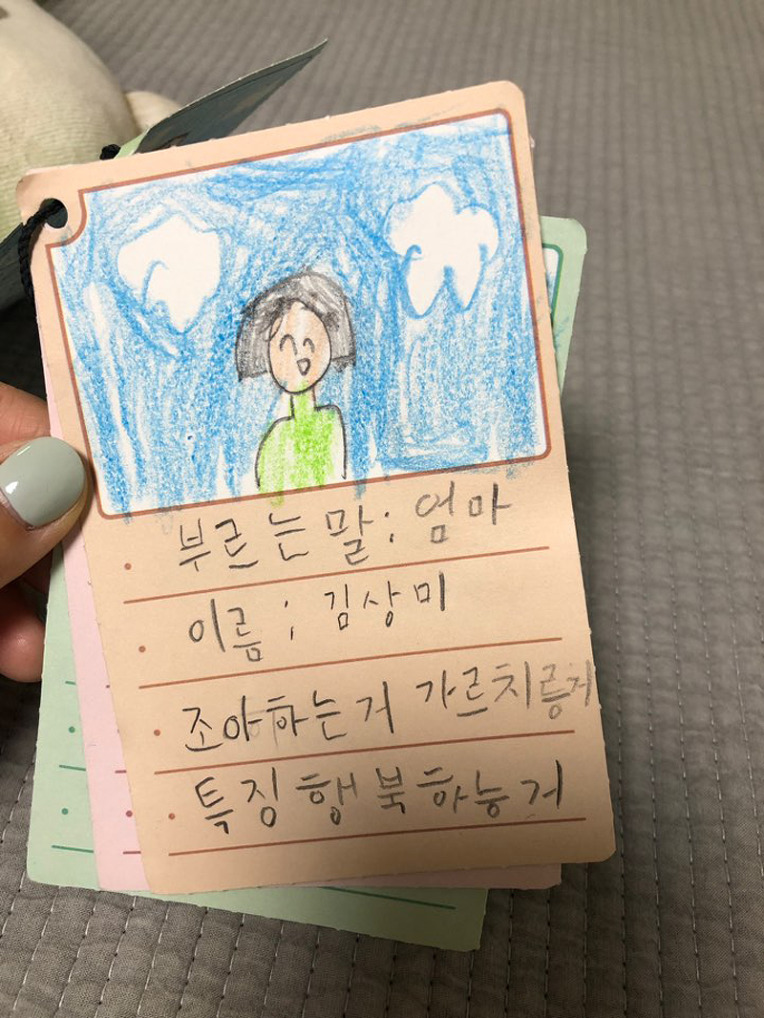 부르는말; 엄마
이름; 김상미
조아하는거 가르치릉거
특징행북하능거